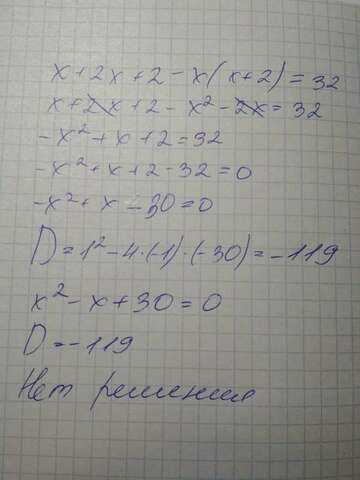 x+2x+2-x(x+2)=32
x+2x+2-x²-2x=32
-x²+x+2=32
-x²+x+2-32=0
-x²+x-30=0
D=1²-4·(-1)·(-30)=-119
x²-x+30=0
D=-119
Нет решения